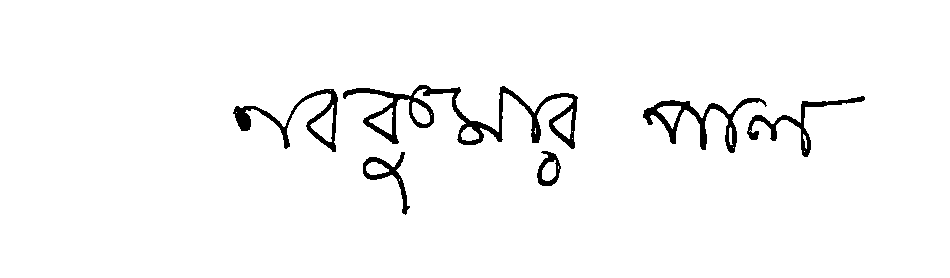 নবকুমার পাল